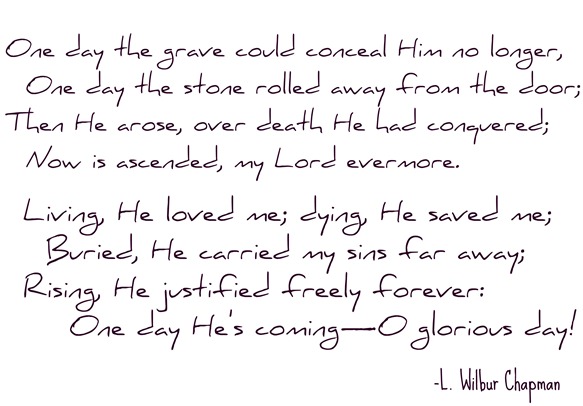 One day the grave could conceal Him no longer,
One day the stone rolled away from the door;
Then He arose, over death He had conquered;
Now is ascended, my Lord evermore.
Living, He loved me; dying, He saved me;
Buried, He carried my sins far away;
Rising, He justified freely forever:
One day He's coming—O glorious day!
-L. Wilbur Chapman